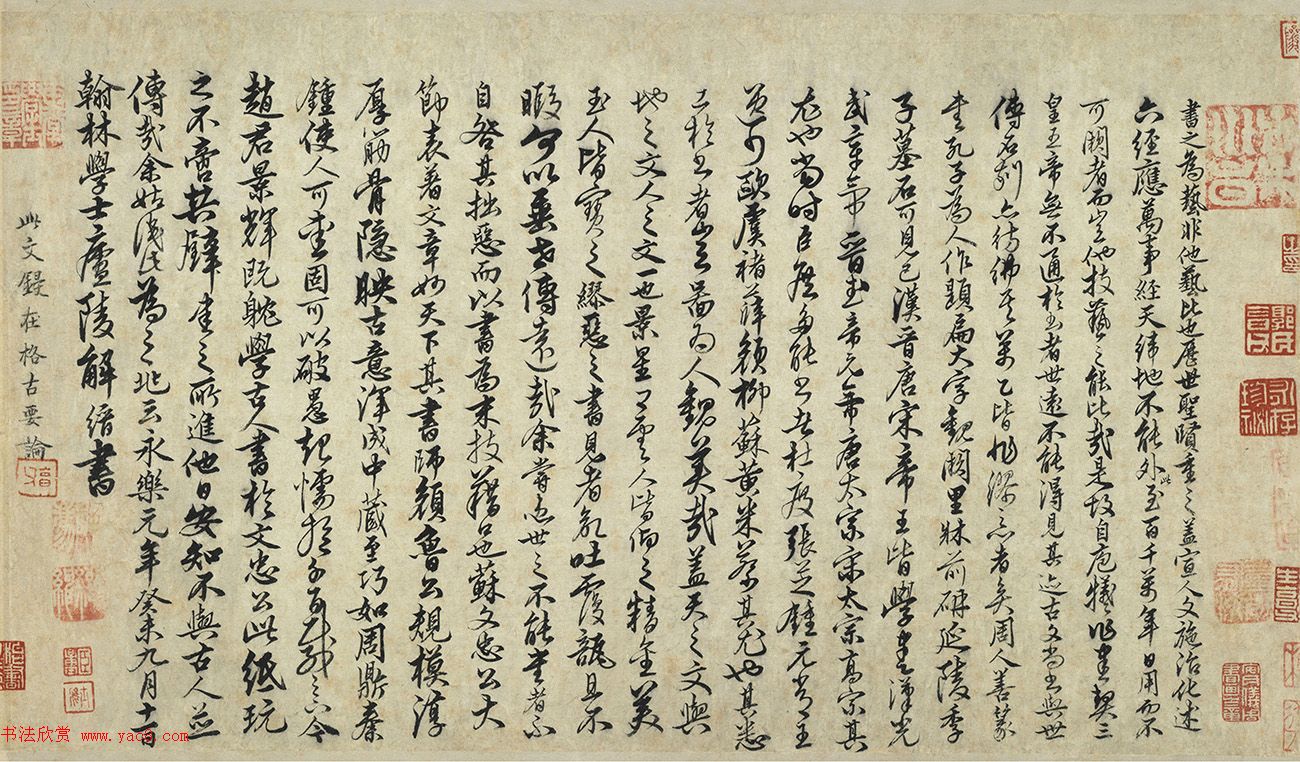 書之為藝非他藝比也歷世聖賢重之蓋宣人文施治化述
六經應萬事經天緯地不能外此至百千萬年日用而不
可闕者而豈他技藝之能比哉是故自庖犧作書契三
皇五帝無不通於書者世遠不能得見其迹古文尚書與世
傳石刻亦彷彿其萬乙皆非者矣周人善篆
書孔子為人作題扁大字觀闕里牀前研延陵季
子墓石可見已漢晉唐宋帝王皆學書漢光
武章帝晉武帝元帝唐太宗宋太宗高宗其
尤也當時臣庶多能書者杜度張芝鍾元常二王
歐虞褚薛顏柳蘇黃米蔡其尤也其悉
工於書者豈為人觀美哉蓋天之文與
地之文人之文一也景星慶雲人皆仰之精金美
玉人皆寶之繆惡之書見者覆瓿且不
暇何以垂世傳遠哉余嘗恠世之不能書者不
自咎其拙惡而以書為末技藉口也蘇文忠公大
節表著文章妙天下其書師顏魯公規模淳
厚筋骨隱映古意渾成中藏至巧如周鼎秦
鍾使人可愛固可以破愚起懦於千百載之下今
趙君景輝既能學古人書於文忠公此紙玩
之不啻拱璧書之所進他日安知不與古人並
傳哉余姑識此為之兆云永樂元年癸未九月十一日
翰林學士廬陵解縉書
此文鋟在格古要論
书法欣赏 www.yac8.com